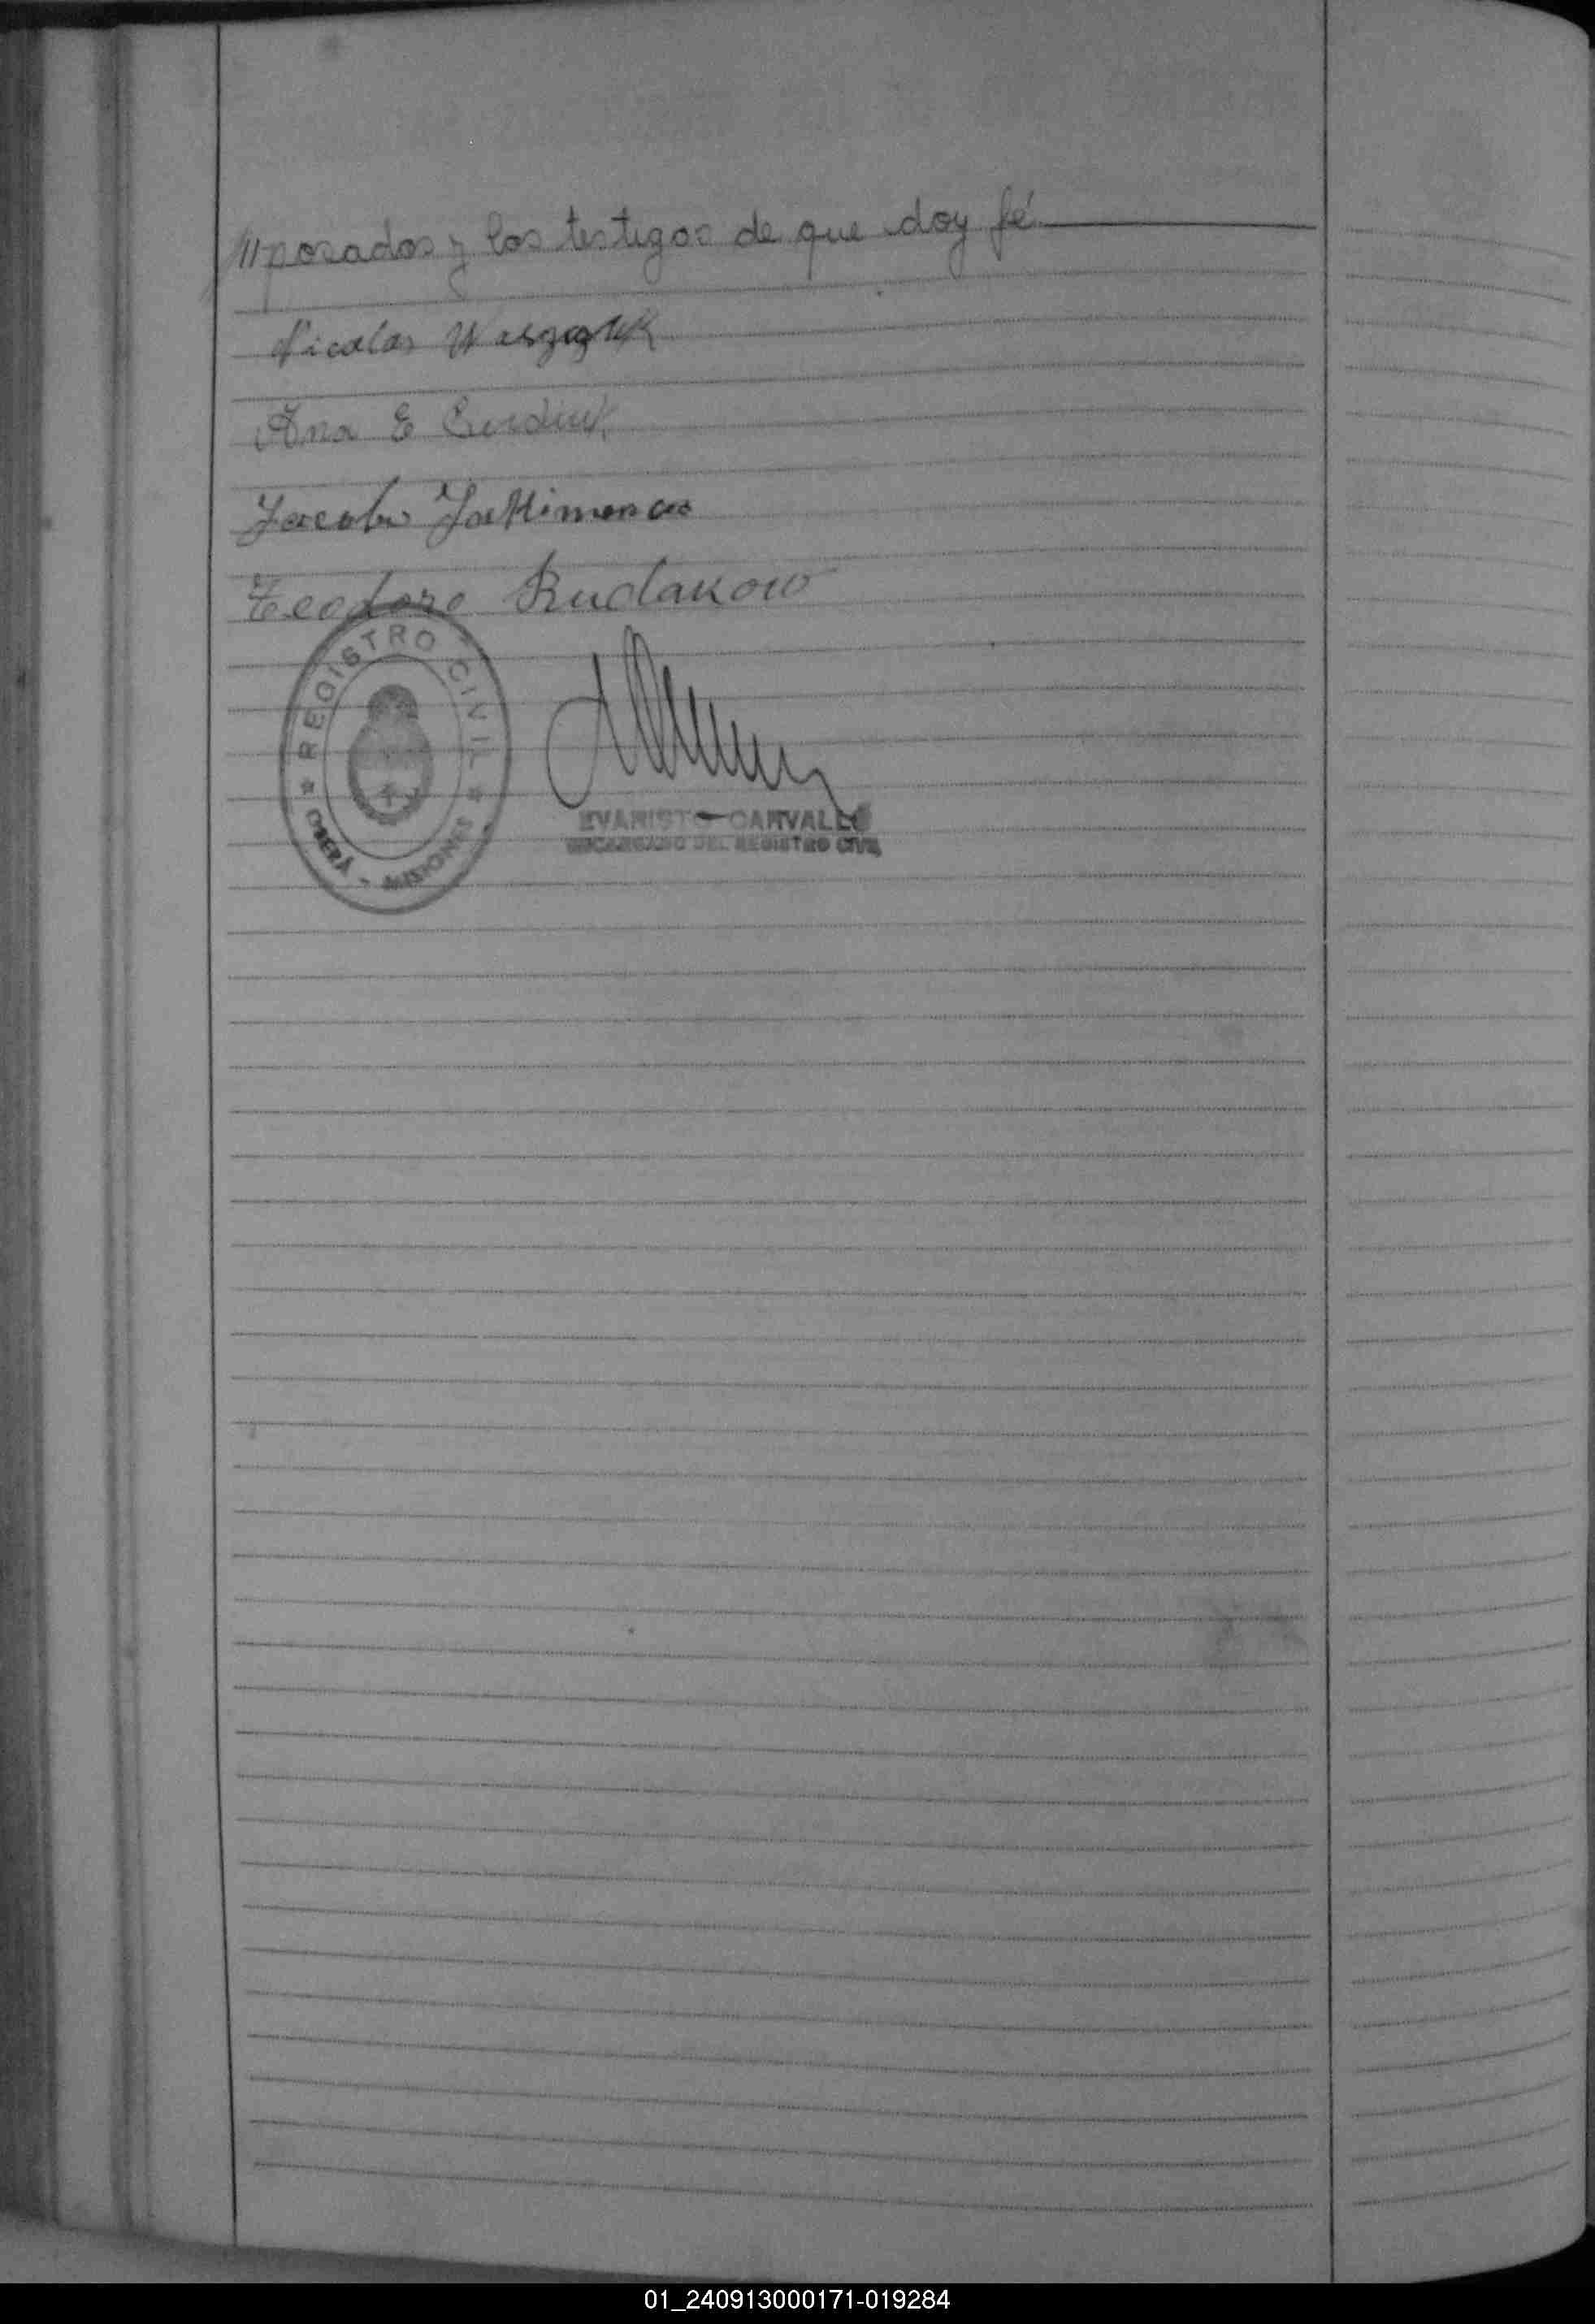 ///posados y los testigos de que doy fé
Nicolas Waszczuk
Ana E
Jacobo
Teodoro Rudakow
REGISTRO CIVIL
OBERÁ - MISIONES
EVARISTO CARVALLO
ENCARGADO DEL REGISTRO CIVIL
01_240913000171-019284